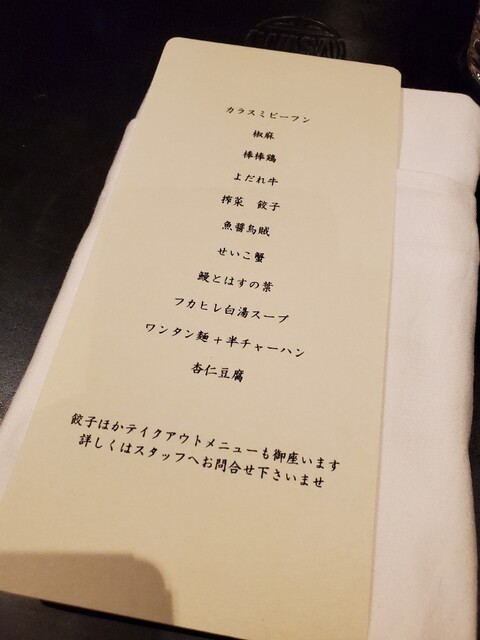 カラスミビーフン
椒麻
棒棒鶏
よだれ牛
搾菜　餃子
魚醤烏賊
せいこ蟹
鰻とはすの葉
フカヒレ白湯スープ
ワンタン麺+半チャーハン
杏仁豆腐
餃子ほかテイクアウトメニューも御座います
詳しくはスタッフへお問合せ下さいませ